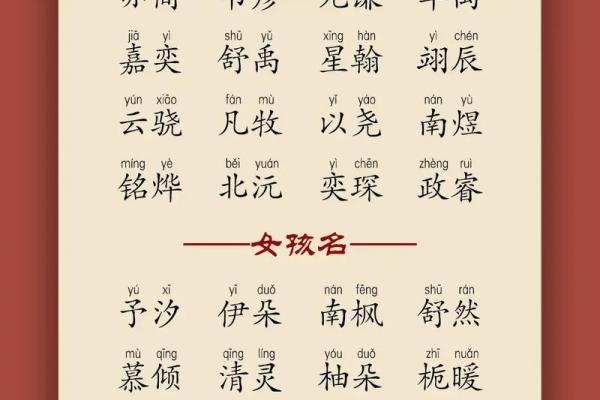 jiā yì shū yǔ xīng hàn yì chén
嘉奕 舒禹 星翰 翊辰
yún xiāo fán mù yǐ yáo nán yù
云骁 凡牧 以尧 南煜
míng yè běi yuán yì chēn zhèng ruì
铭烨 北沅 奕琛 政睿
女孩名
yú xī yī duǒ nán fēng shū rán
予汐 伊朵 南枫 舒然
mù qīng qīng líng yóu duǒ zhī nuǎn
慕倾 清灵 柚朵 栀暖